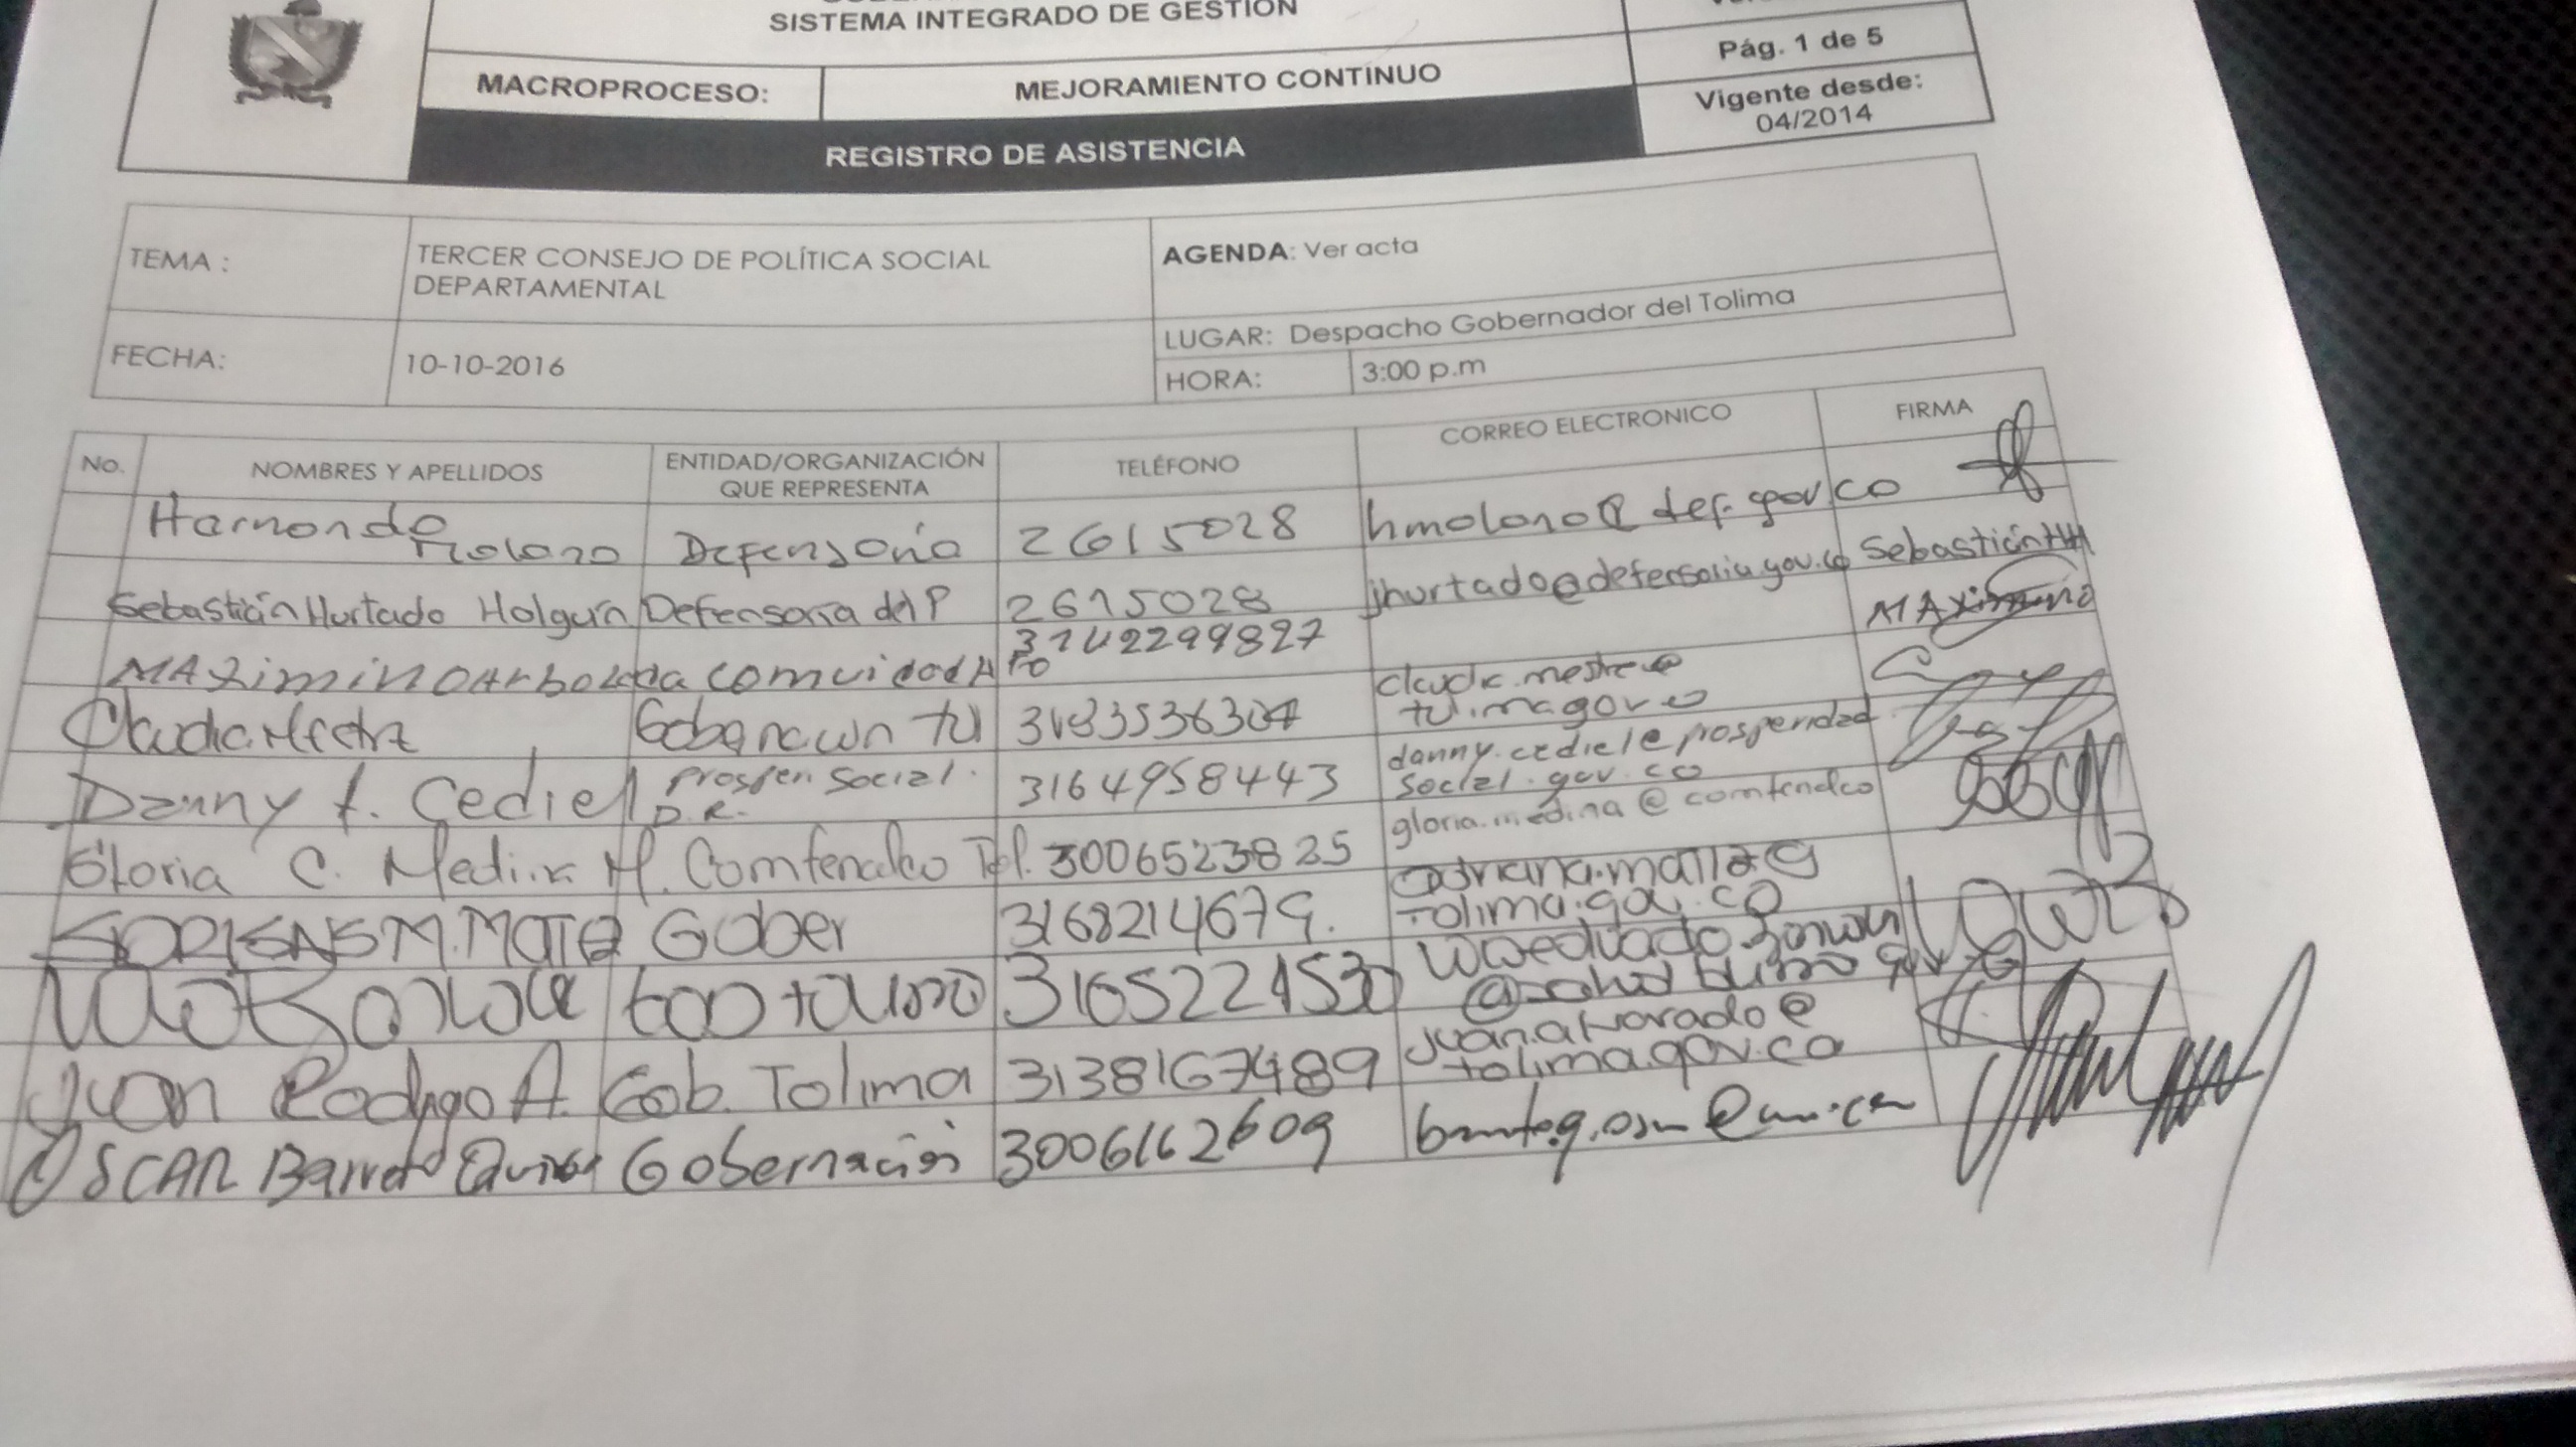 SISTEMA INTEGRADO DE GESTIÓN
MACROPROCESO: MEJORAMIENTO CONTINUO
Pág. 1 de 5
Vigente desde:
04/2014
REGISTRO DE ASISTENCIA
TEMA : TERCER CONSEJO DE POLÍTICA SOCIAL
DEPARTAMENTAL
AGENDA: Ver acta
LUGAR: Despacho Gobernador del Tolima
FECHA: 10-10-2016
HORA: 3:00 p.m
No. NOMBRES Y APELLIDOS ENTIDAD/ORGANIZACIÓN
QUE REPRESENTA TELÉFONO CORREO ELECTRONICO FIRMA
Hernando
Molano Defensoria 2615028 hmolano@def.gov.co
Sebastián Hurtado Holguín Defensoria del P 2615028 jhurtado@defensoria.gov.co Sebastián HH
MAximino Arboleda 3142299827 MAximino
Claudia Gobernacion
Danny A. Cediel prosperi social.
D.R. 3164958443 danny.cediel@prosperidad
social.gov.co
Gloria C. Medina M. Comfenalco Tel. 3006523825 gloria.medina@comfenalco
M. Matta Gober 3168214679. adriana.matta@
tolima.gov.co
Juan Rodrigo A. Gob. Tolima 3138167489 juan.alvarado@
tolima.gov.co
OSCAR Barreto Quiroga Gobernación 3006162609